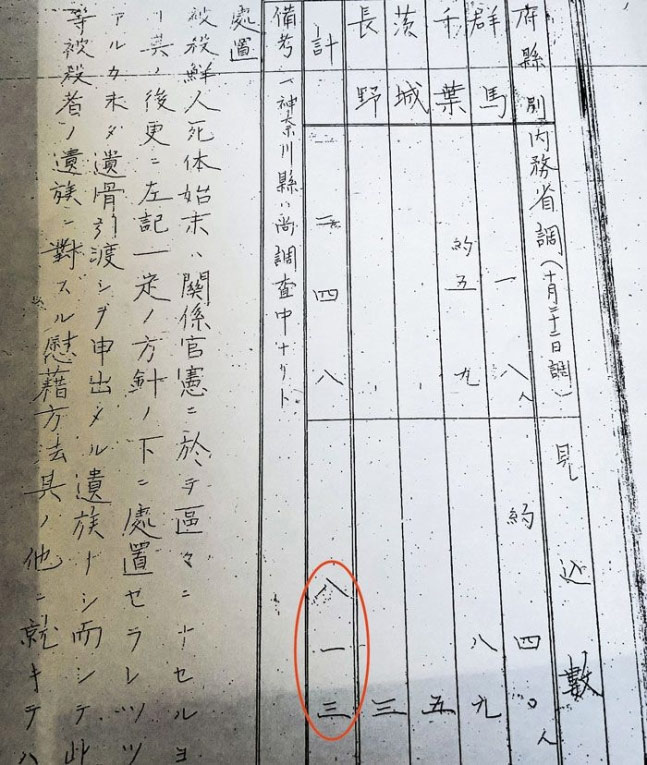 府縣別 内務省調(十月二十二日調) 見込數
群馬 一八人 約四〇人
千葉 約五九 八九
茨城 五
長野 三
計 二四八 八一三
備考 一神奈川縣ハ尚調査中ナリト
處置
被殺鮮人死体始末ハ關係官憲ニ於テ區々ニナセルヨ
リ其ノ後更ニ左記一定ノ方針ノ下ニ處置セラレツツ
アルカ未ダ遺骨引渡シヲ申出メル遺族ナシ而シテ此
等被殺者ノ遺族ニ對スル慰藉方法其ノ他ニ就キテハ